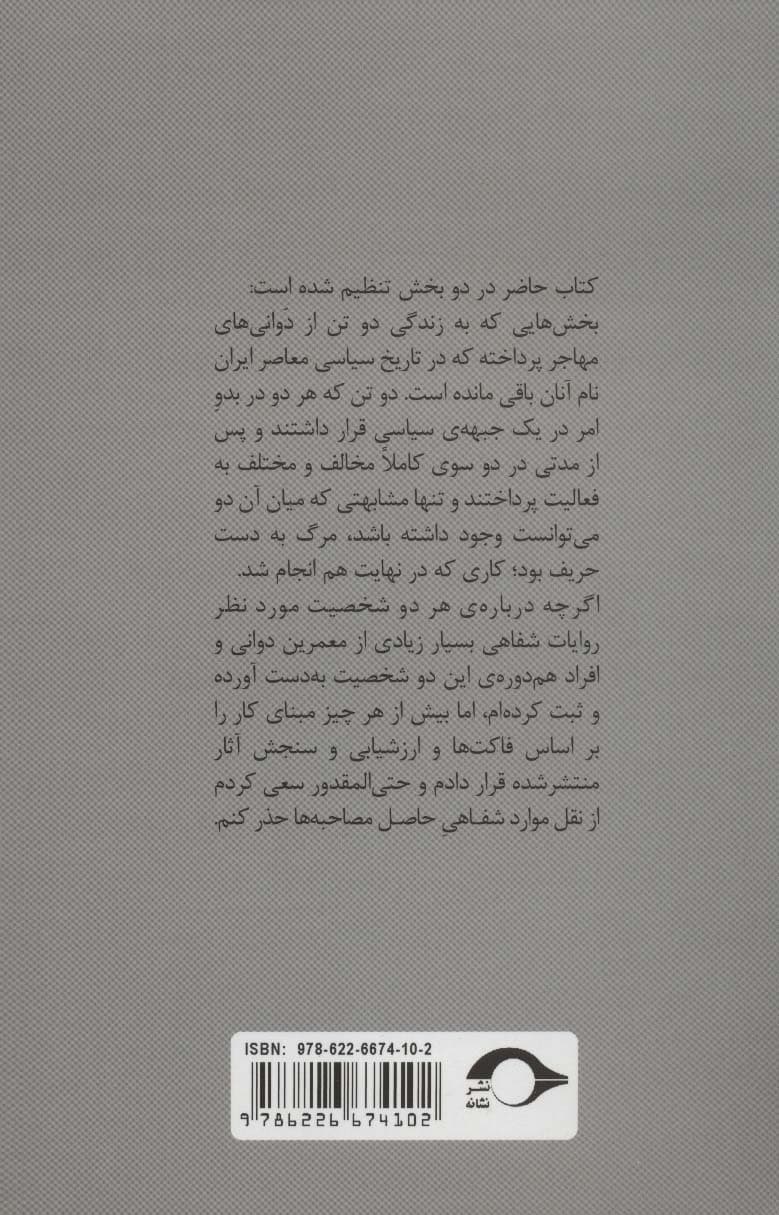 کتاب حاضر در دو بخش تنظیم شده است:
بخش‌هایی که به زندگی دو تن از دَوانی‌های
مهاجر پرداخته که در تاریخ سیاسی معاصر ایران
نام آنان باقی مانده است. دو تن که هر دو در بدوِ
امر در یک جبهه‌ی سیاسی قرار داشتند و پس
از مدتی در دو سوی کاملاً مخالف و مختلف به
فعالیت پرداختند و تنها مشابهتی که میان آن دو
می‌توانست وجود داشته باشد، مرگ به دست
حریف بود؛ کاری که در نهایت هم انجام شد.
اگرچه درباره‌ی هر دو شخصیت مورد نظر
روایات شفاهی بسیار زیادی از معمرین دوانی و
افراد هم‌دوره‌ی این دو شخصیت به‌دست آورده
و ثبت کرده‌ام، اما بیش از هر چیز مبنای کار را
بر اساس فاکت‌ها و ارزشیابی و سنجش آثار
منتشرشده قرار دادم و حتی‌المقدور سعی کردم
از نقل موارد شفاهیِ حاصل مصاحبه‌ها حذر کنم.
ISBN: 978-622-6674-10-2
9 786226 674102
نشر
نشانه